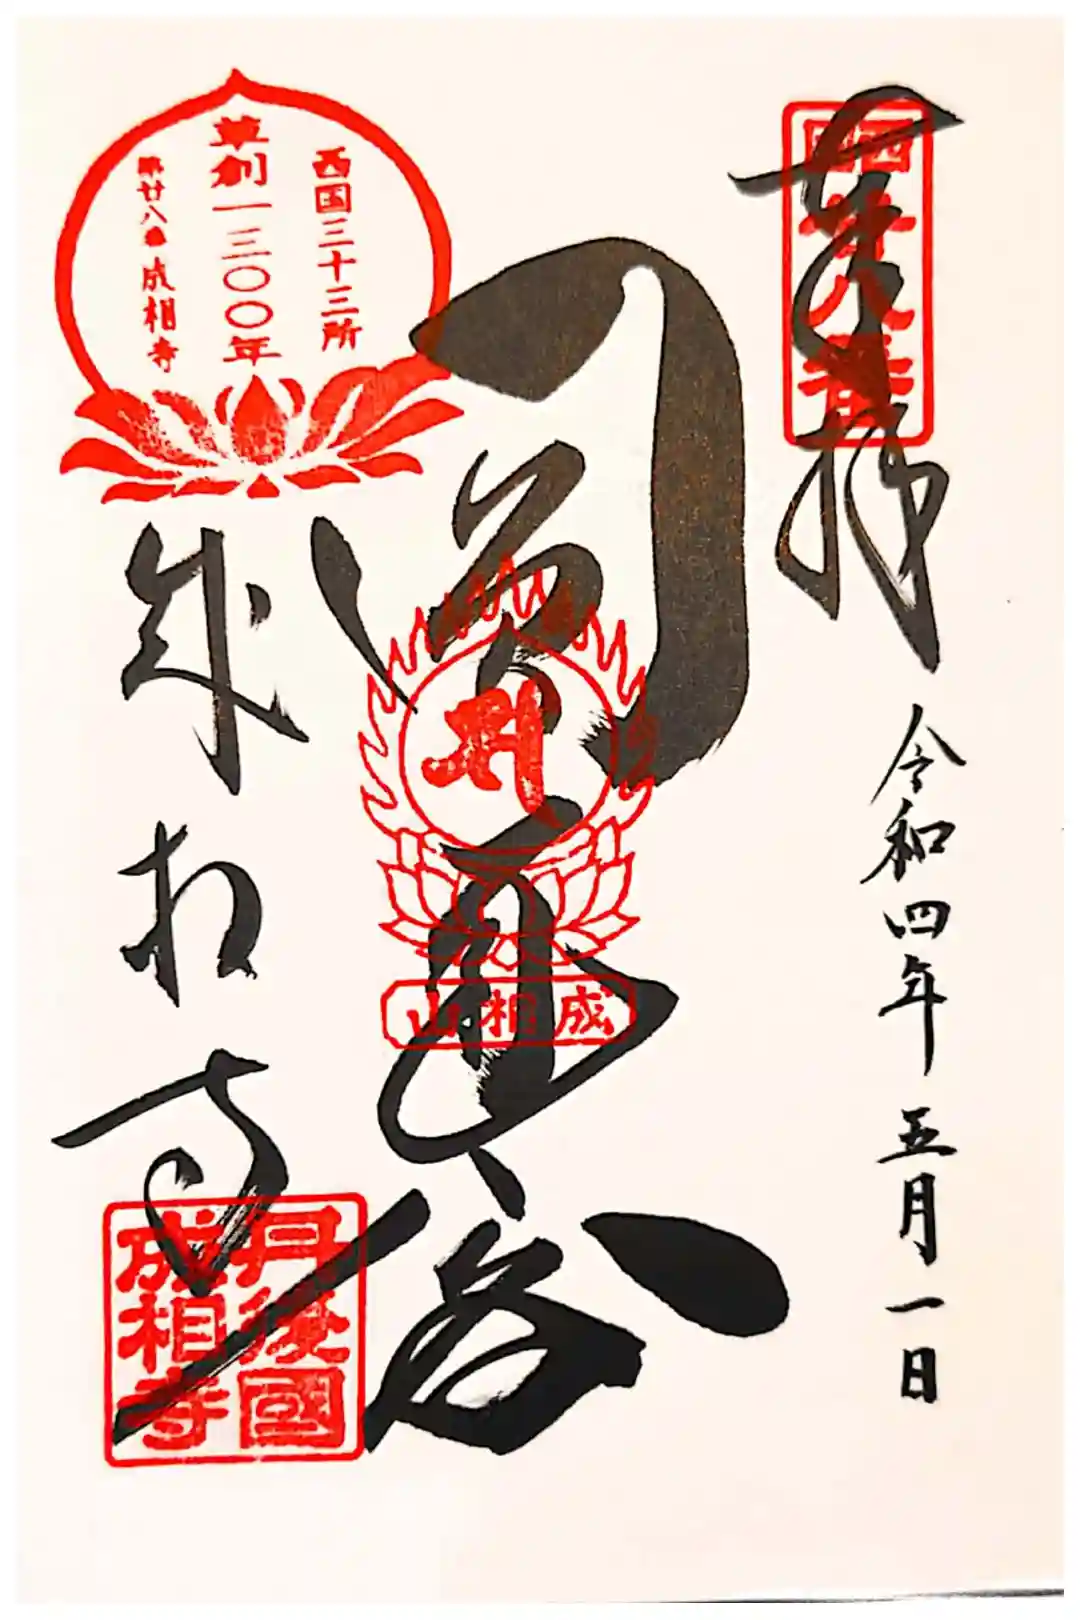 奉拝
西國廿八番
令和四年五月一日
成相山
西国三十三所
草創一三〇〇年
第廿八番成相寺
成相寺
丹後國
成相寺